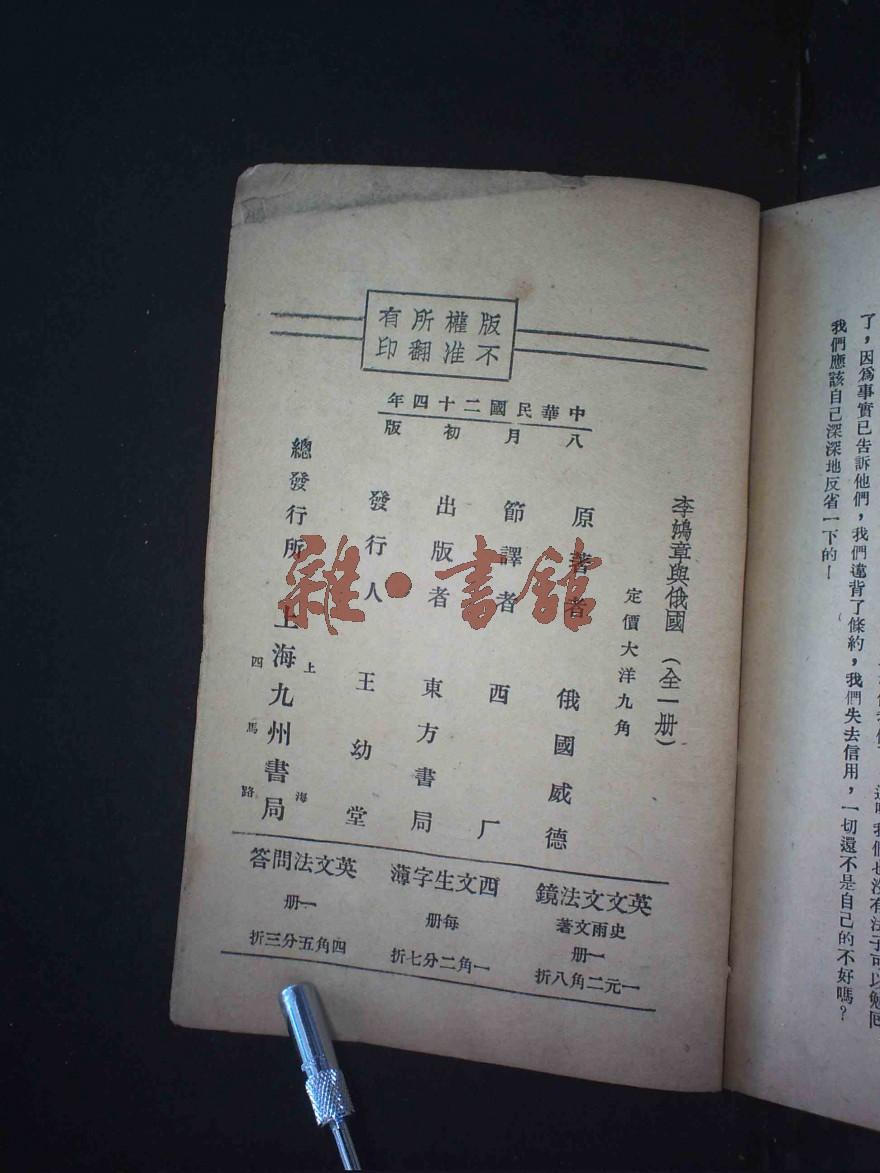 版權所有
不准翻印
中華民國二十四年
八月初版
李鴻章與俄國 (全一册)
定價大洋九角
原著者 俄國威德
節譯者 西厂
出版者 東方書局
發行人 王幼堂
總發行所 上海九州書局
上海
四馬路
英文文法鏡
史雨文著
一册
一元二角八折
西文生字薄
每册
一角二分七折
英文法問答
一册
四角五分三折
雜·書館
了，因爲事實已告訴他們，我們違背了條約，我們失去信用，一切還不是自己的不好嗎？
我們應該自己深深地反省一下的—